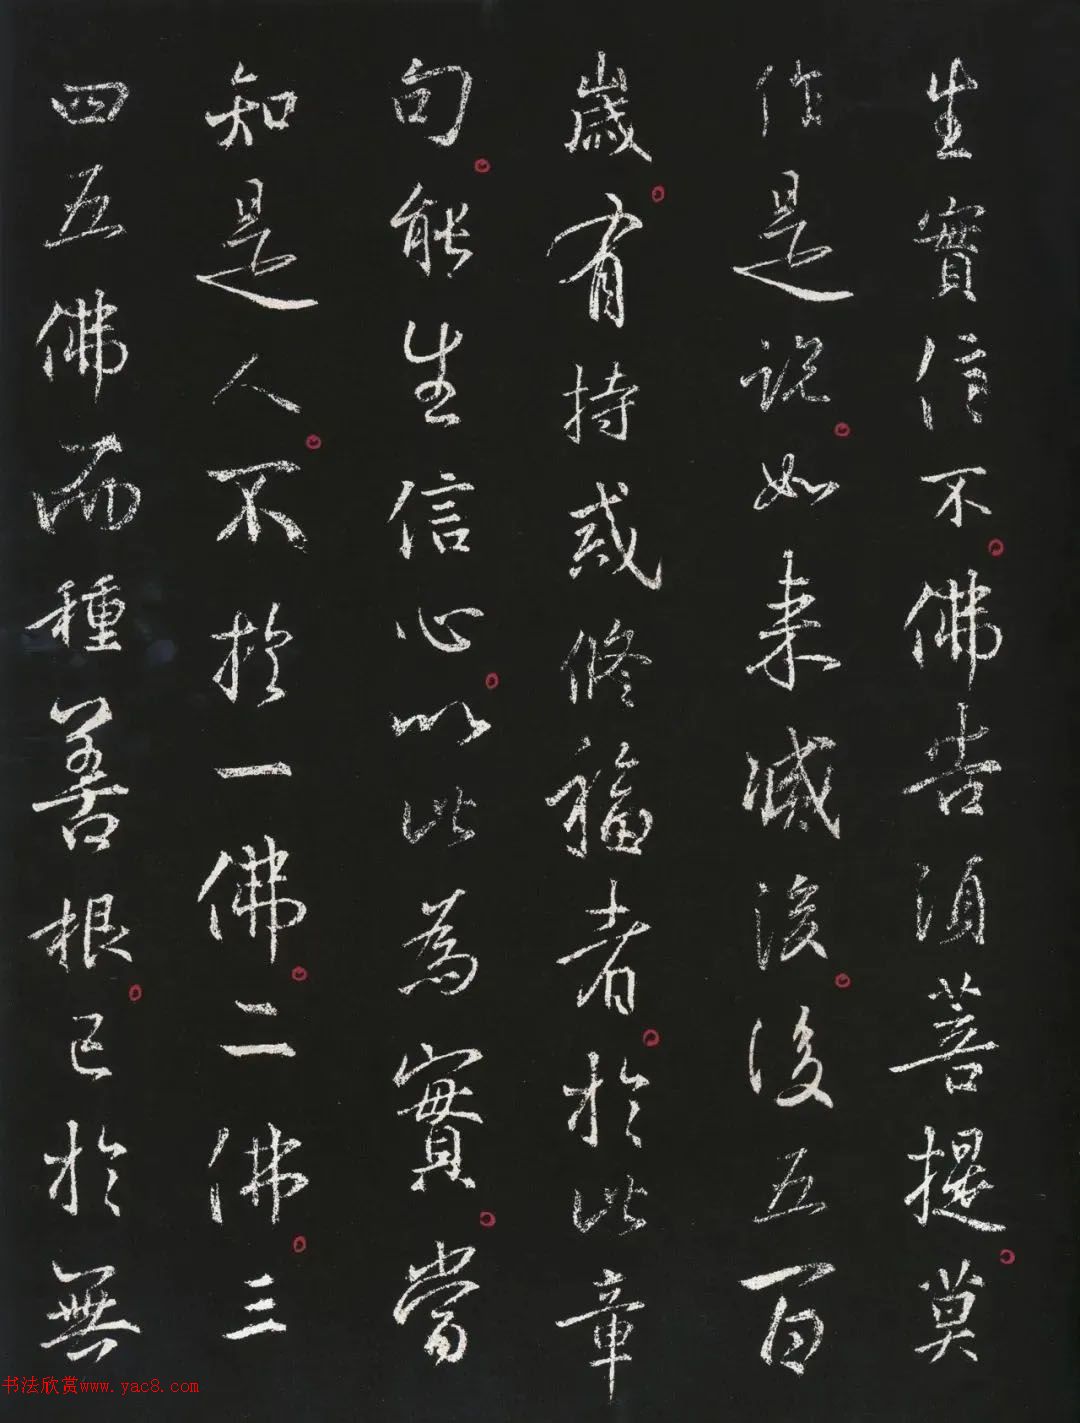 生實信不。佛告須菩提。莫
作是說。如来滅後。後五百
歲。有持戒修福者。於此章
句。能生信心。以此為實。當
知是人。不於一佛。二佛。三
四五佛而種善根。已於無
书法欣赏www.yac8.com